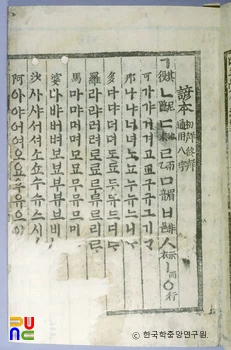 諺本 初聲終聲 通用八字
ㄱ ㄴ ㄷ ㄹ ㅁ ㅂ ㅅ ㅣ ㅇ 行
可 가갸거겨고교구규그기ᄀᆞ
那 나냐너녀노뇨누뉴느니ᄂᆞ
多 다댜더뎌도됴두듀드디ᄃᆞ
羅 라랴러려로료루류르리ᄅᆞ
馬 마먀머며모묘무뮤므미
婆 바뱌버벼보뵤부뷰브비
沙 사샤서셔소쇼수슈스시
阿 아야어여오요우유으이
ⓒ 한국학중앙연구원.